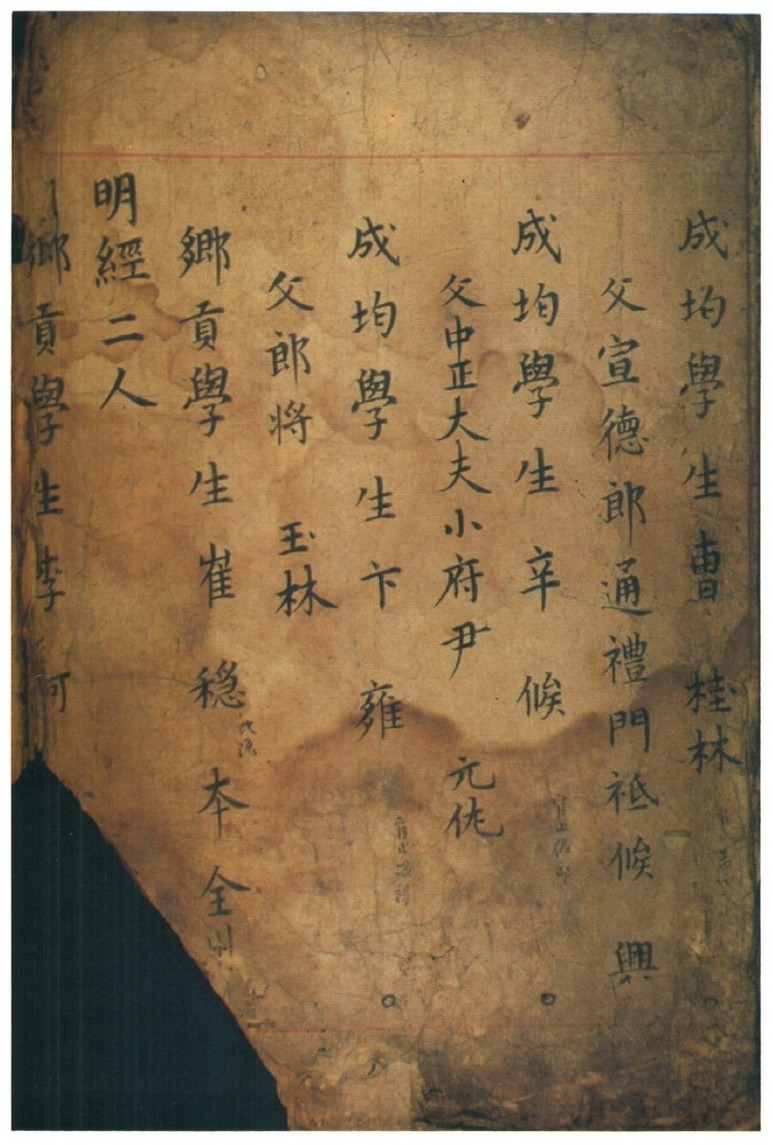 成均學生曺桂林
父宣德郎通禮門祗候興
成均學生辛候
父中正大夫小府尹元佐
成均學生卞雍
父郎将玉林
鄕貢學生崔穏 本全州
明經二人
鄕貢學生李